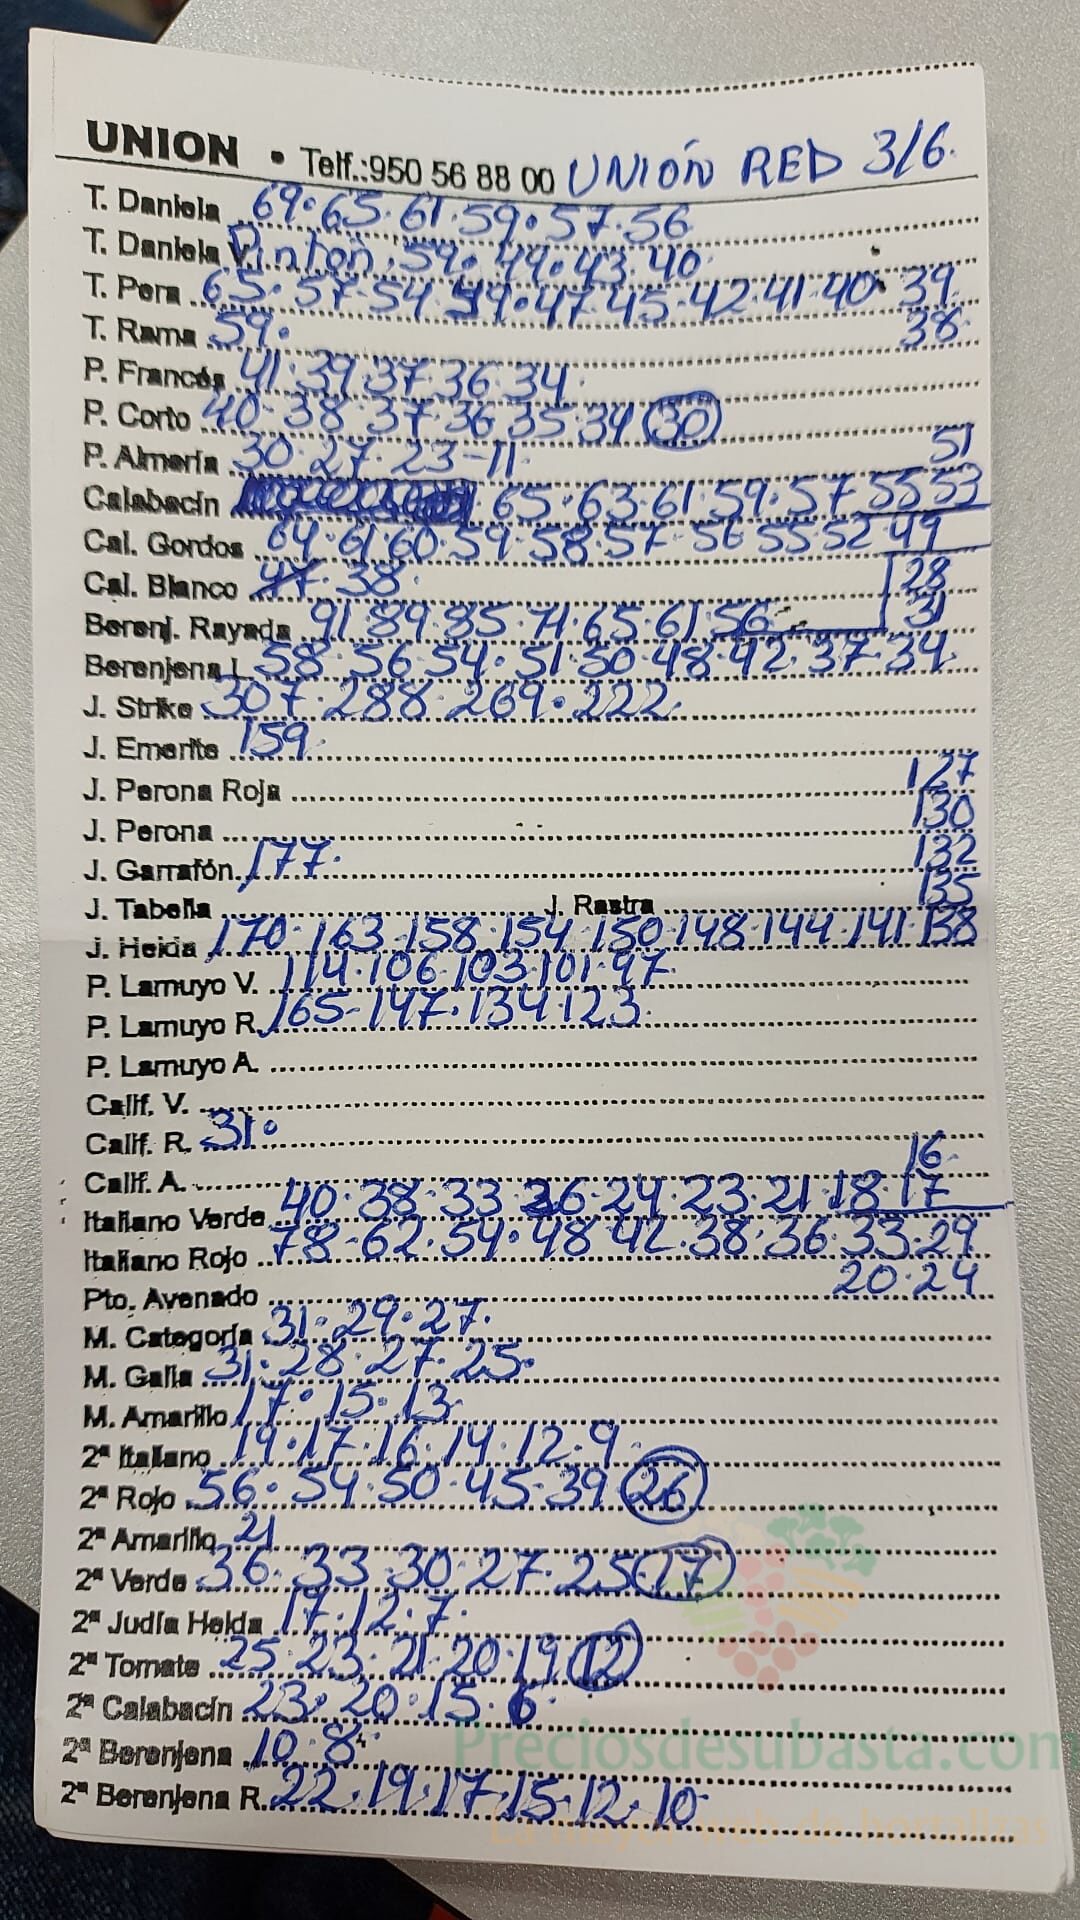 UNION • Telf.:950 56 88 00 UNIÓN RED 3/6.
T. Daniela 69·65·61·59·57·56
T. Daniela V. Pintón ·59·49·43·40
T. Pera 65·57·54·49·47·45·42·41·40·39
T. Rama 59· 38
P. Francés 41·39·37·36·34·
P. Corto 40·38·37·36·35·34 30
P. Almería 30·27·23-11· 51
Calabacín 65·63·61·59·57 55 53
Cal. Gordos 64·61·60·59·58·57·56 55·52 49
Cal. Blanco 47·38· 28
Berenj. Rayada 91·89·85·71·65·61·56 31
Berenjena L. 58·56·54·51·50·48·42·37·34
J. Strike 307·288·269·222
J. Emerite 159·
J. Perona Roja 127
J. Perona 130
J. Garrafón 177· 132
J. Tabella J. Rastra 135
J. Helda 170·163·158·154·150·148·144·141·138
P. Lamuyo V. 114·106·103·101·97
P. Lamuyo R. 165-147·134·123
P. Lamuyo A.
Calif. V.
Calif. R. 31·
Calif. A. 16
Italiano Verde 40·38·33·26·24·23·21·18·17
Italiano Rojo 78·62·54·48·42·38·36·33·29
Pto. Avenado 20·24
M. Categoría 31·29·27·
M. Galia 31·28·27·25·
M. Amarillo 17·15·13
2ª Italiano 19·17·16·14·12·9·
2ª Rojo 56·54·50·45·39 26
2ª Amarillo 21
2ª Verde 36·33·30·27·25 17
2ª Judía Helda 17·12·7·
2ª Tomate 25·23·21·20·19 12
2ª Calabacín 23·20·15·6·
2ª Berenjena 10·8·
2ª Berenjena R. 22·19·17·15·12·10
Preciosdesubasta.com
La mayor web de hortalizas